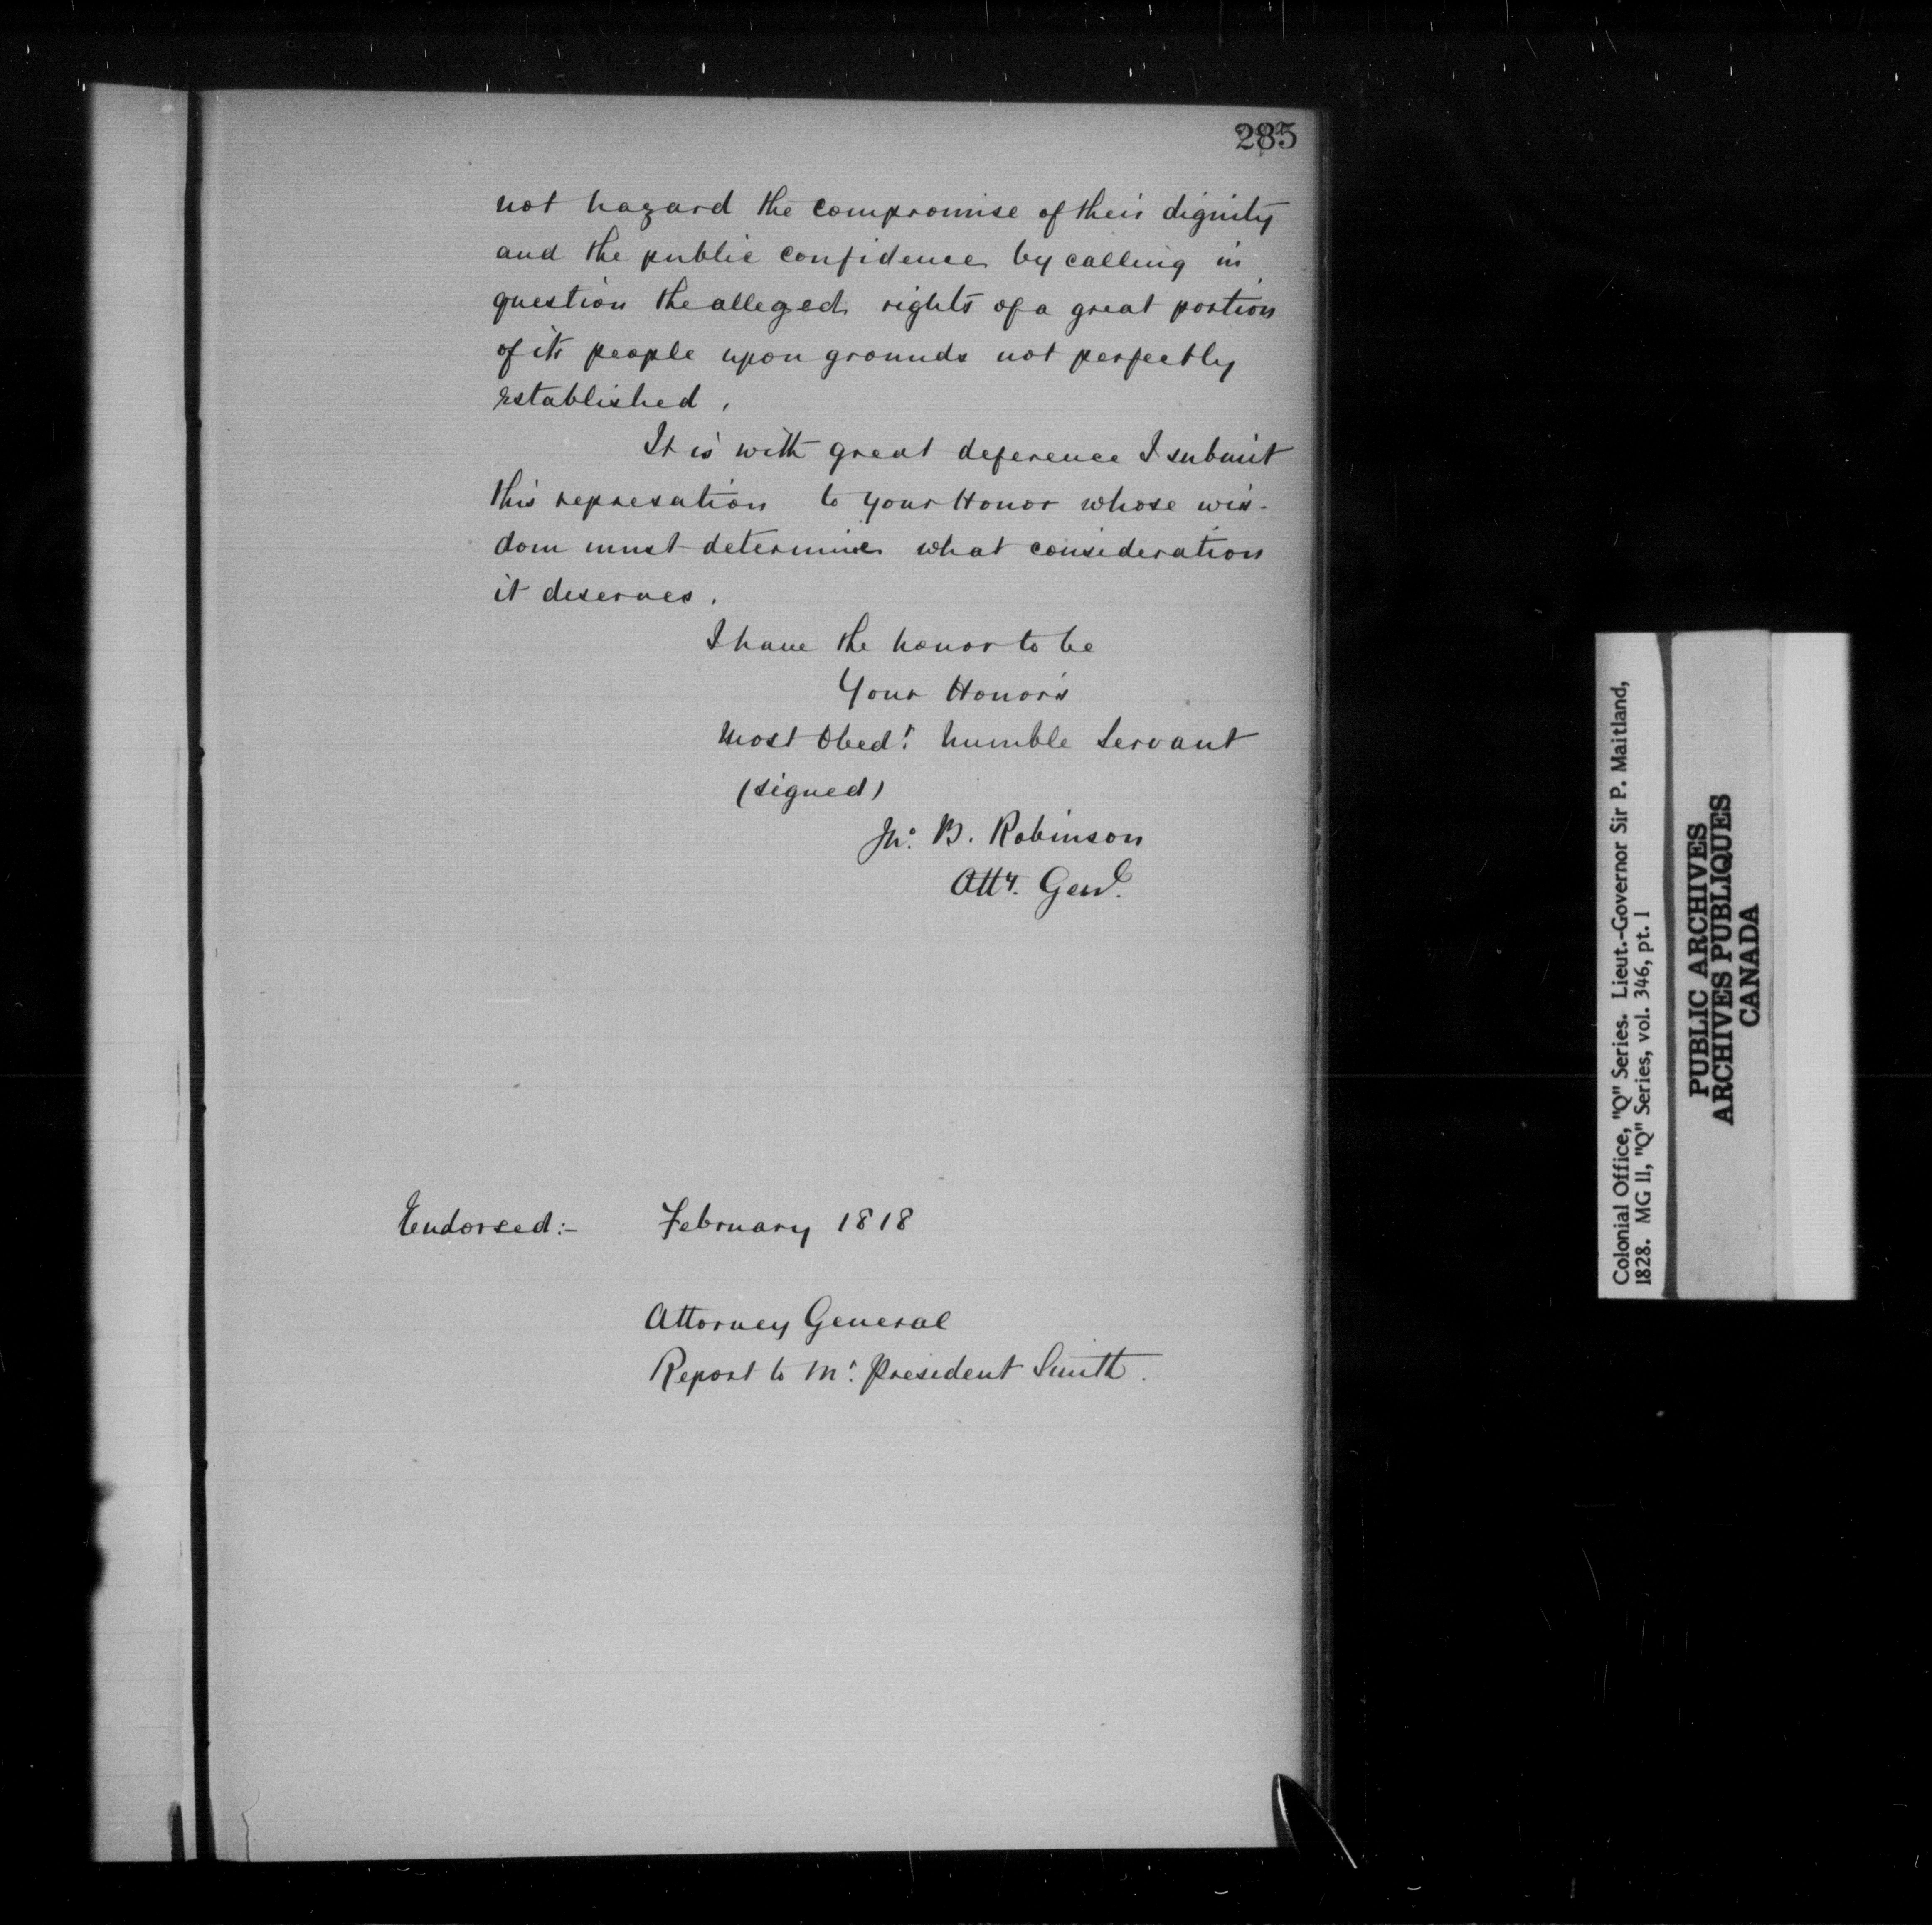 285
not hazard the compromise of their dignity
and the public confidence by calling in
question the alleged rights of a great portion
of its people upon grounds not perfectly
established.
It is with great deference I submit
this represation to your Honor whose wis-
dom must determine what consideration
it deserves.
I have the honor to be
Your Honor's
Most Obedt. humble Servant
(signed)
Jno. B. Robinson
Atty. Genl.
Endorsed:-
February 1818
Attorney General
Report to Mr. President Smith.
Colonial Office, "Q" Series. Lieut.-Governor Sir P. Maitland,
1828. MG 11, "Q" Series, vol. 346, pt. 1
PUBLIC ARCHIVES
ARCHIVES PUBLIQUES
CANADA